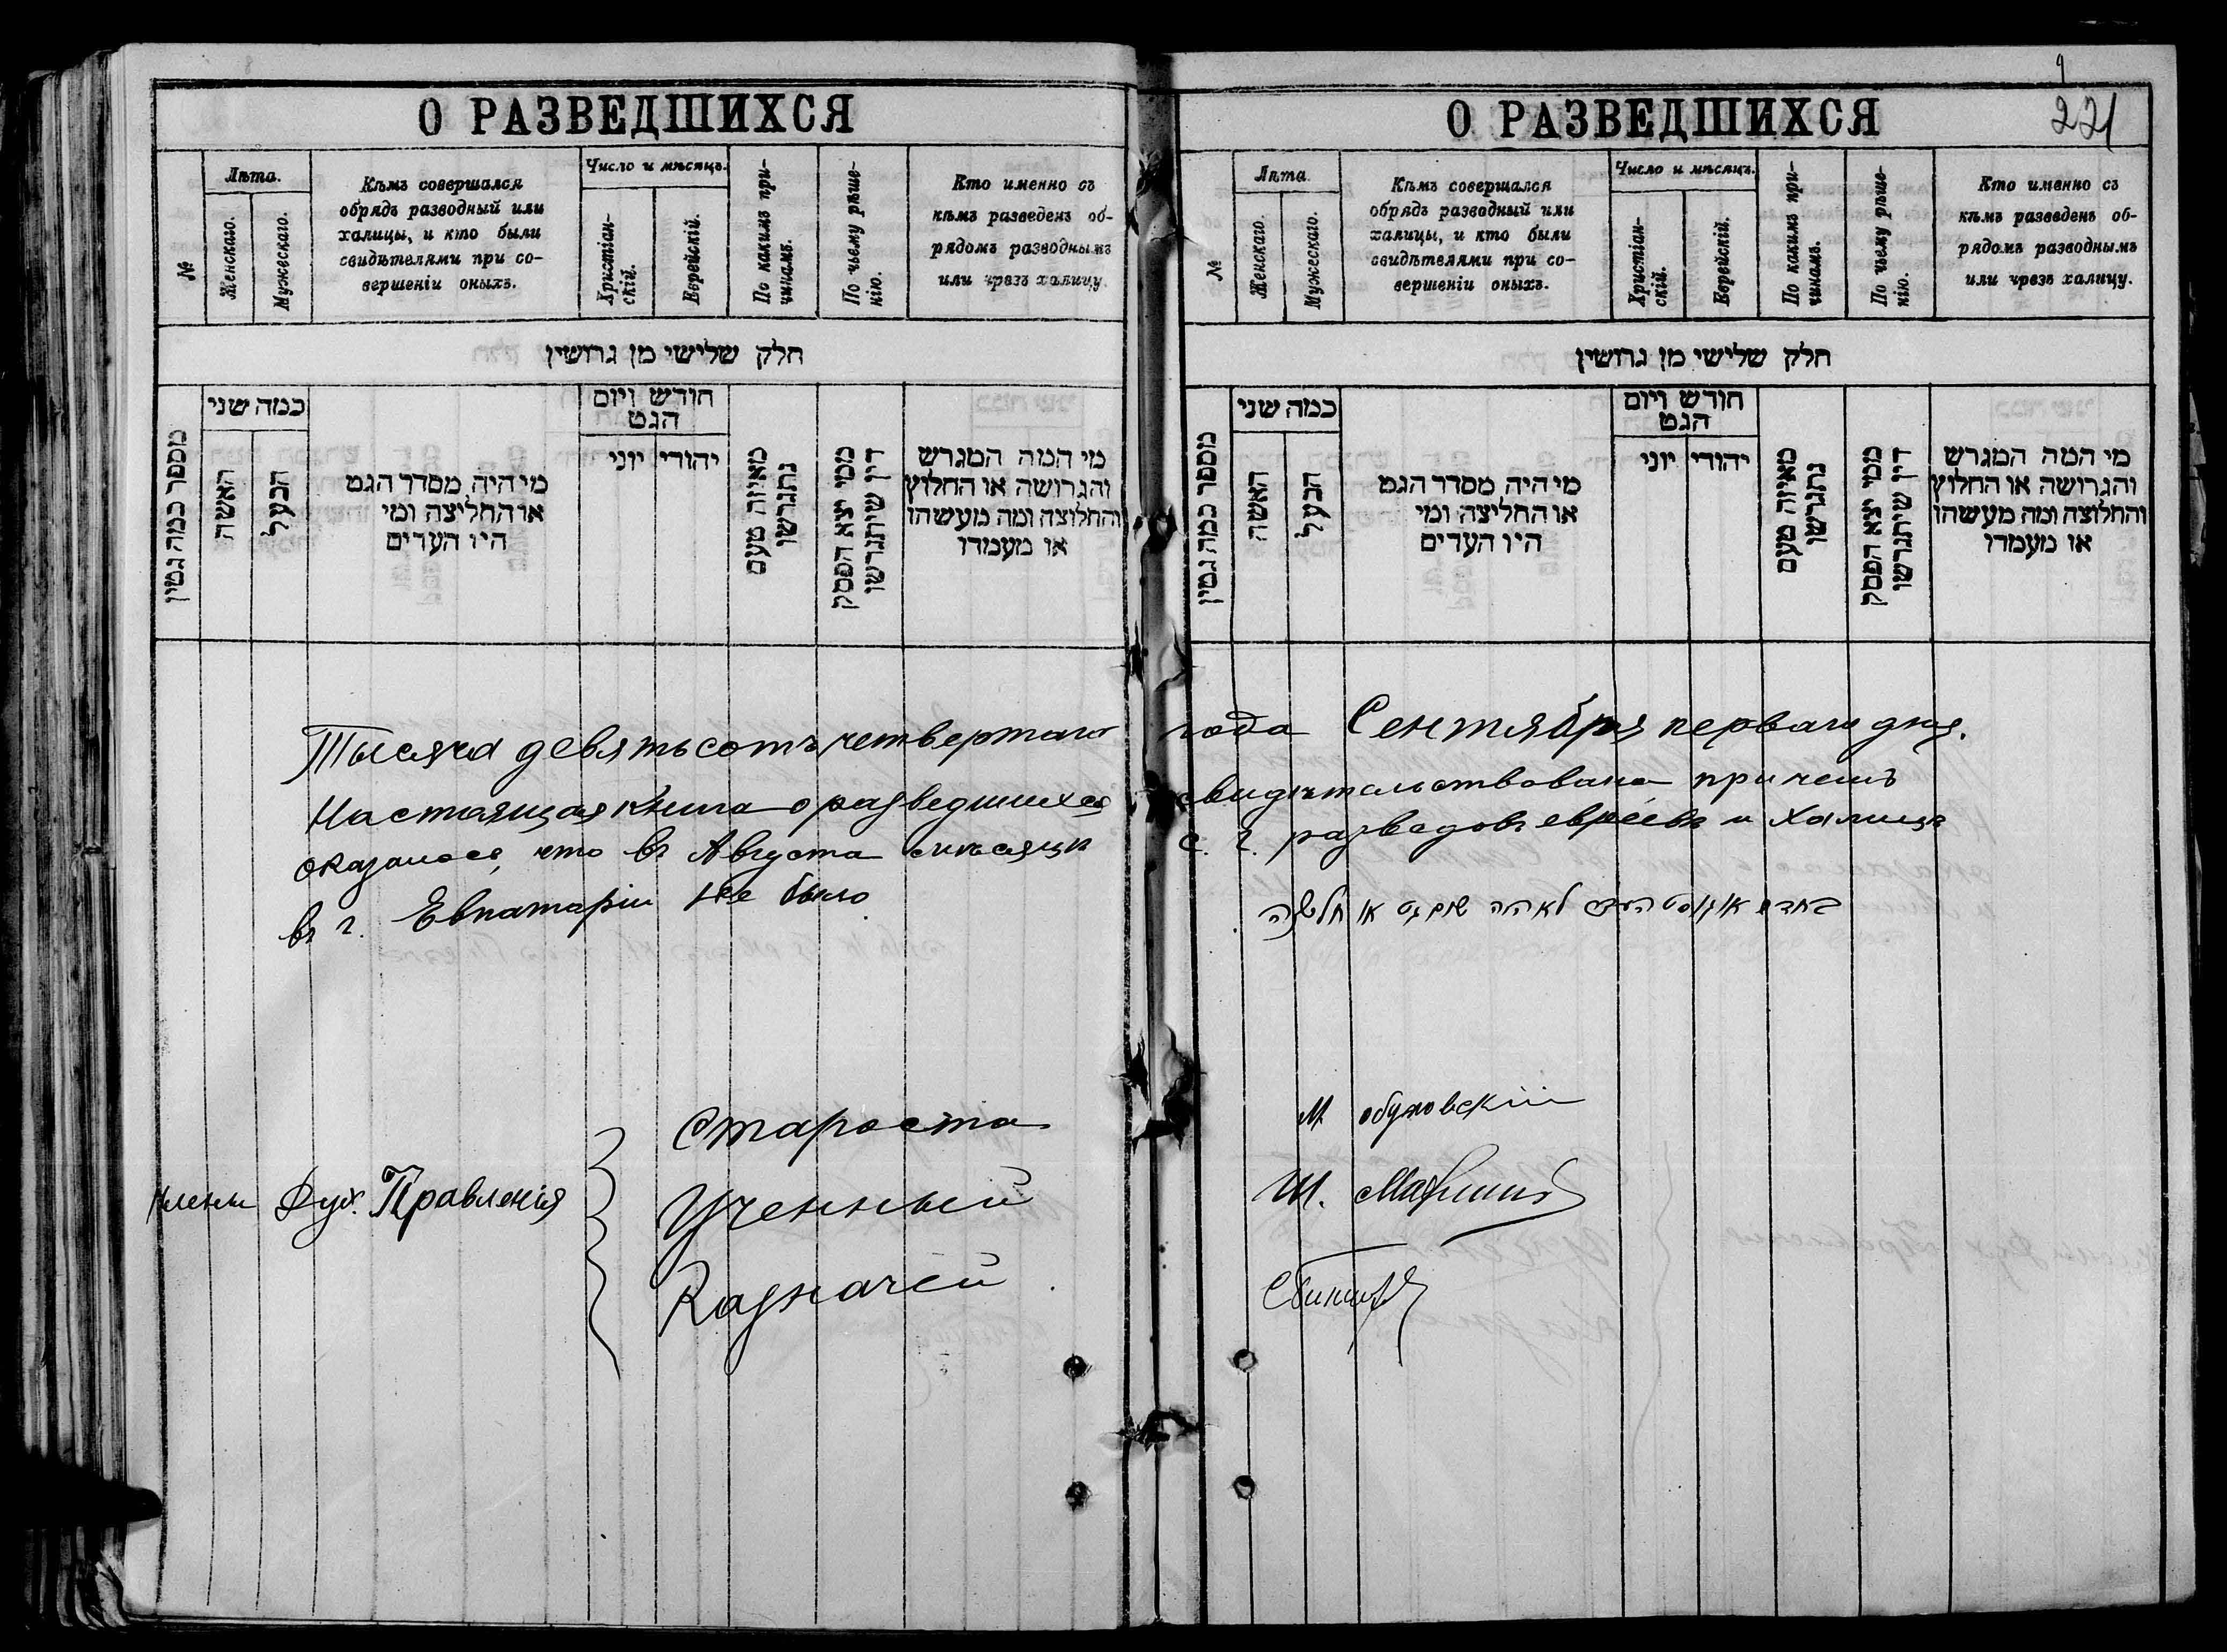 О РАЗВЕДШИХСЯ
№
Лѣта.
Женскаго.
Мужескаго.
Кѣмъ совершался
обрядъ разводный или
халицы, и кто были
свидѣтелями при со-
вершеніи оныхъ.
Число и мѣсяцъ.
Христіан-
скій.
Еврейскій.
По какимъ при-
чинамъ.
По чьему рѣше-
нію.
Кто именно съ
кѣмъ разведенъ об-
рядомъ разводнымъ
или чрезъ халицу.
חלק שלישי מן גרושין
מספר כמה גטין
כמה שני
האשה
הבעל
מי היה מסדר הגט
או החליצה ומי
היו העדים
חודש ויום
הגט
יוני
יהודי
מאיזה טעם
נתגרשו
ממי יצא הפסק
דין שיתגרשו
מי המה המגרש
והגרושה או החלוץ
והחלוצה ומה מעשהו
או מעמדו
О РАЗВЕДШИХСЯ
9
221
№
Лѣта
Женскаго.
Мужескаго.
Кѣмъ совершался
обрядъ разводный или
халицы, и кто были
свидѣтелями при со-
вершеніи оныхъ.
Число и мѣсяцъ.
Христіан-
скій.
Еврейскій.
По какимъ при-
чинамъ.
По чьему рѣше-
нію.
Кто именно съ
кѣмъ разведенъ об-
рядомъ разводнымъ
или чрезъ халицу.
חלק שלישי מן גרושין
מספר כמה גטין
כמה שני
האשה
הבעל
מי היה מסדר הגט
או החליצה ומי
היו העדים
חודש ויום
הגט
יוני
יהודי
מאיזה טעם
נתגרשו
ממי יצא הפסק
דין שיתגרשו
מי המה המגרש
והגרושה או החלוץ
והחלוצה ומה מעשהו
או מעמדו
Тысяча девятьсотъ четвертаго года Сентября перваго дня.
Настоящая книга о разведшихся свидѣтельствована при чемъ
оказалось, что въ Августа мѣсяцѣ с. г. разводовъ евреевъ и халицъ
въ г. Евпаторіи не было
בחדש אוגוסט לא היה שום גט או חליצה
Члены Дух. Правленія
Староста
М. Обуховскій
Ученный
Ш.
Казначей